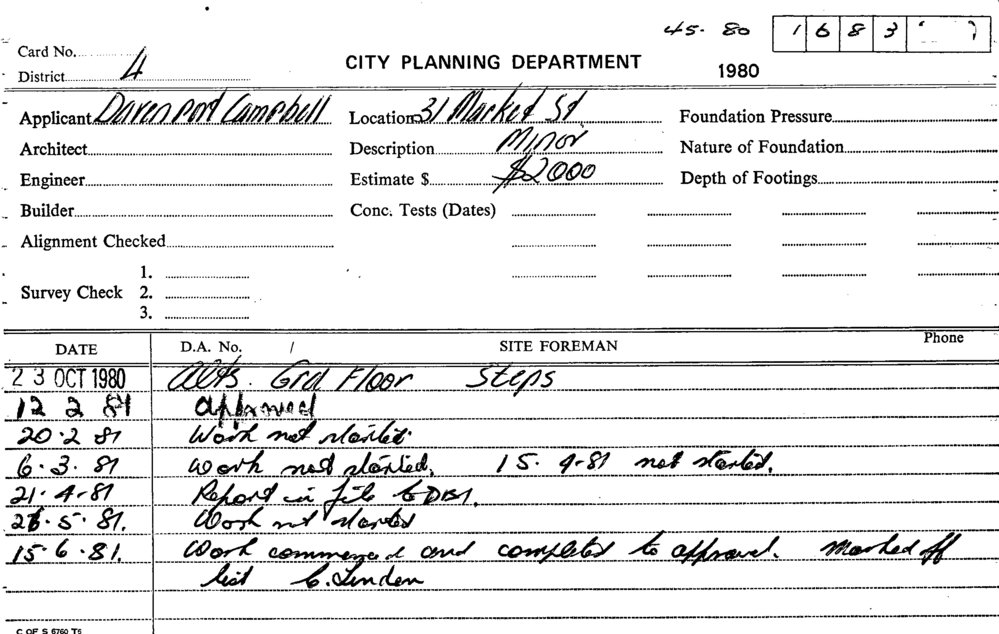 45·80 1683
Card No.
District 4
CITY PLANNING DEPARTMENT
1980
Applicant Davenport Campbell Location 31 Market St. Foundation Pressure
Architect Description Minor Nature of Foundation
Engineer Estimate $ $2000 Depth of Footings
Builder Conc. Tests (Dates)
Alignment Checked
1.
Survey Check 2.
3.
DATE D.A. No. / SITE FOREMAN Phone
23 OCT 1980 Alts. Grd Floor Steps
12 2 81 approved
20·2 81 Work not started.
6·3·81 Work not started. 15·4-81 not started.
21·4-81 Report in file to
5·81. Work not started
15·6·81. Work commenced and completed to approval. Marked off
list C. Linden
C OF S 6760 T6